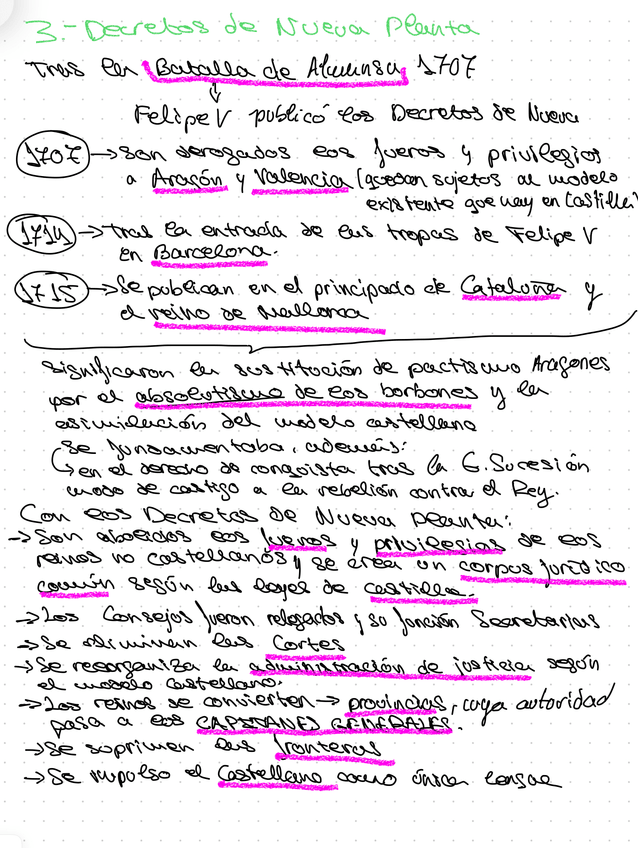 3.- Decretos de Nueva Planta
Tras la Batalla de Almansa 1707
Felipe V publicó los Decretos de Nueva
1707 → son derogados los fueros y privilegios
a Aragón y Valencia (quedan sujetos al modelo
existente que hay en Castilla)
1714 → Tras la entrada de las tropas de Felipe V
en Barcelona.
1715 → Se publican en el principado de Cataluña y
el reino de Mallorca
Significaron la sustitución de pactismo Aragones
por el absolutismo de los borbones y la
asimilación del modelo castellano
Se fundamentaba, además:
↳ en el derecho de conquista tras la G. Sucesión
modo de castigo a la rebelión contra el Rey.
Con los Decretos de Nueva Planta:
→ Son abolidos los fueros y privilegias de los
reinos no castellanos y se crea un corpus jurídico
común según las leyes de Castilla.
→ Los Consejos fueron relegados y su función Secretarias
→ Se eliminan las Cortes
→ Se reorganiza la administración de justicia según
el modelo Castellano.
→ Los reinos se convierten → provincias, cuya autoridad
pasa a los CAPITANES GENERALES.
→ Se suprimen las fronteras
→ Se impulso el Castellano como única lengua